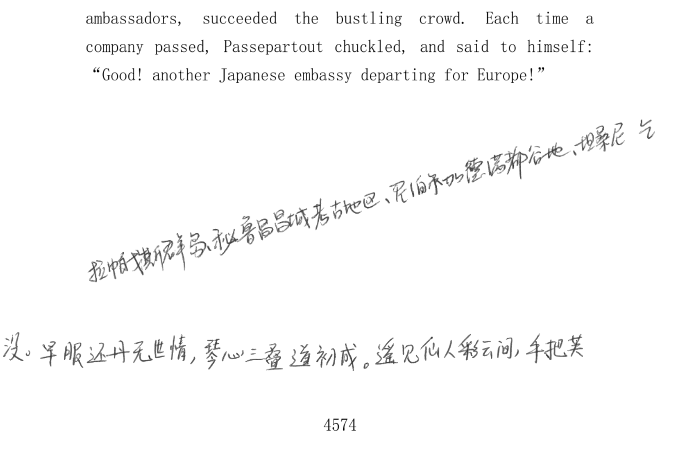 ambassadors, succeeded the bustling crowd. Each time a
company passed, Passepartout chuckled, and said to himself:
“Good! another Japanese embassy departing for Europe!”
拉帕戈斯群岛、秘鲁昌昌城考古地区、尼泊尔加德满都谷地、坦桑尼 乞
没。早服还丹无世情，琴心三叠道初成。遥见仙人彩云间，手把芙
4574